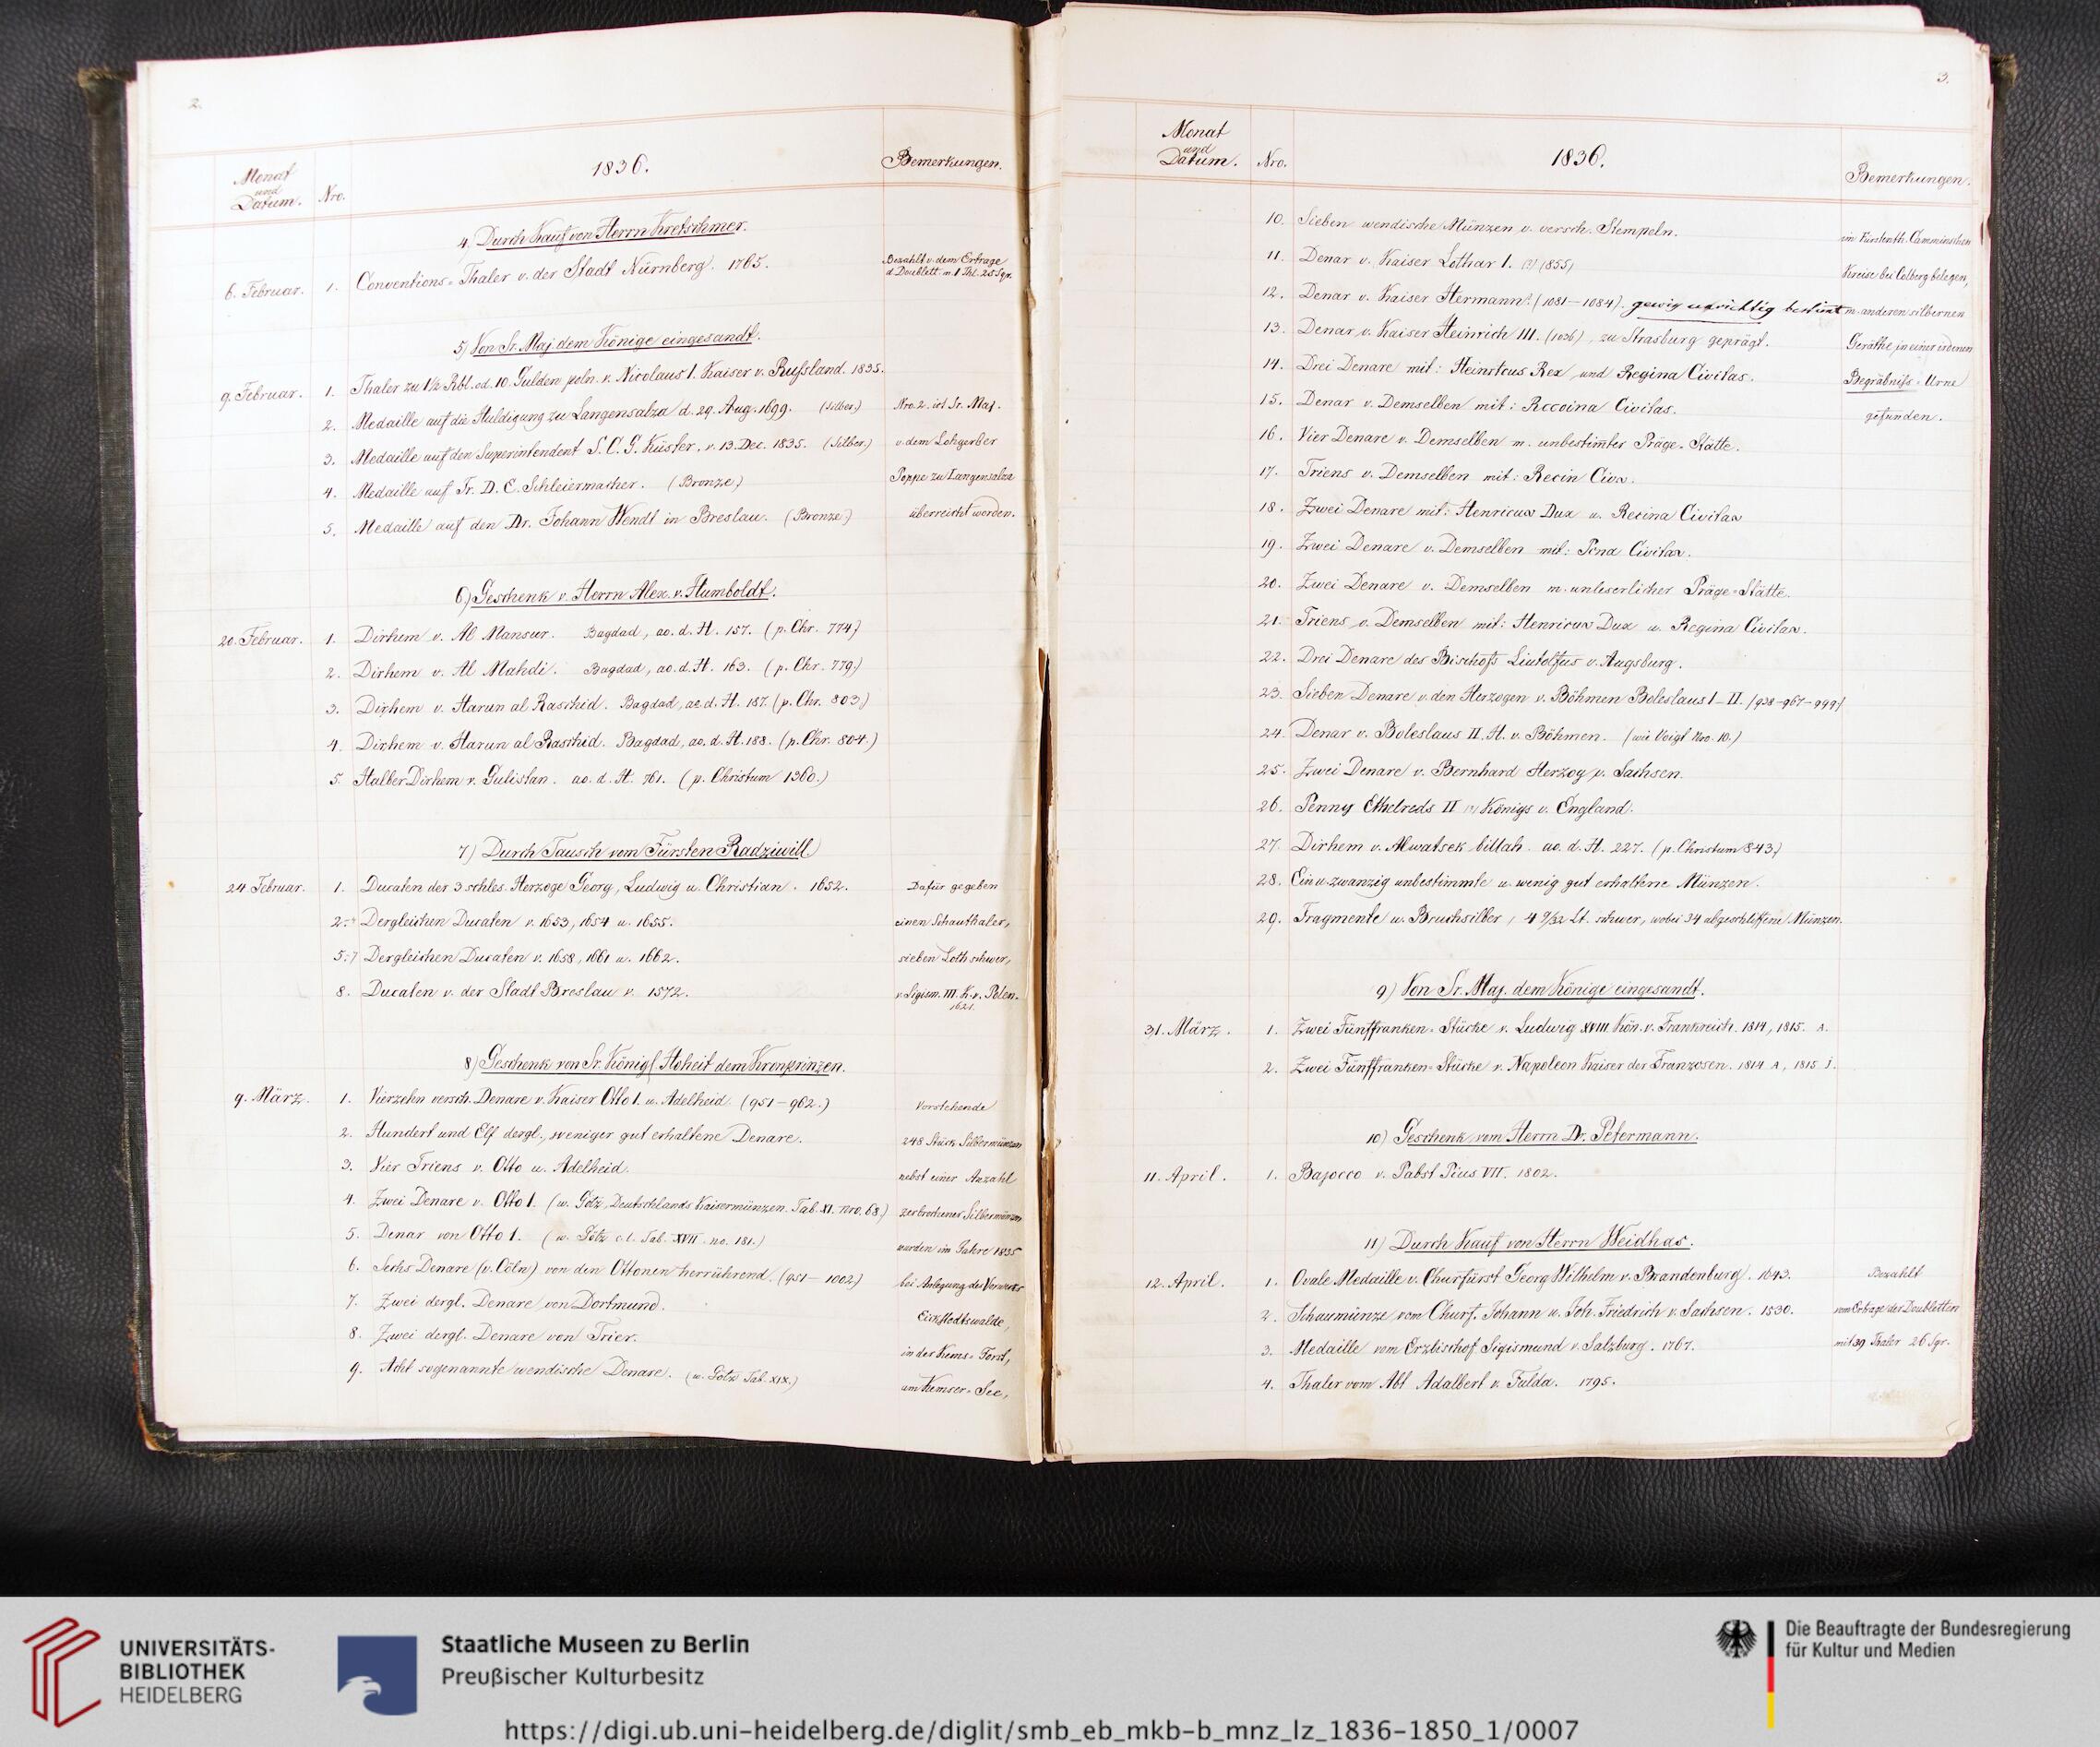 2.
Monat
und
Datum.
Nro.
1836.
Bemerkungen.
4) Durch Kauf von Herrn Kretschmer.
6. Februar. 1. Conventions-Thaler v. der Stadt Nürnberg. 1765.
Bezahlt v. dem Ertrage
d. Doublett. m. 1 Thl. 25 Sgr.
5) Von Sr. Maj. dem Könige eingesandt.
9. Februar. 1. Thaler zu 1½ Rbl. od. 10 Gulden poln. v. Nicolaus I. Kaiser v. Russland. 1835.
2. Medaille auf die Huldigung zu Langensalza d. 29. Aug. 1699. (Silber.) Nro. 2. ist Sr. Maj.
3. Medaille auf den Superintendent S. C. G. Küster, v. 13. Dec. 1835. (Silber.) v. dem Lohgerber
4. Medaille auf Fr. D. E. Schleiermacher. (Bronze.) Poppe zu Langensalza
5. Medaille auf den Dr. Johann Wendt in Breslau. (Bronze.) überreicht worden.
6) Geschenk v. Herrn Alex. v. Humboldt.
20. Februar. 1. Dirhem v. Al Mansur. Bagdad, ao. d. H. 157. (p. Chr. 774)
2. Dirhem v. Al Mahdi. Bagdad, ao. d. H. 163. (p. Chr. 779)
3. Dirhem v. Harun al Raschid. Bagdad, ao. d. H. 187. (p. Chr. 803)
4. Dirhem v. Harun al Raschid. Bagdad, ao. d. H. 188. (p. Chr. 804.)
5. Halber Dirhem v. Gulistan. ao. d. H. 761. (p. Christum 1360.)
7) Durch Tausch vom Fürsten Radziwill.
24. Februar. 1. Ducaten der 3 schles. Herzoge Georg, Ludwig u. Christian. 1652. Dafür gegeben
2. Dergleichen Ducaten v. 1653, 1654 u. 1655. einen Schauthaler,
5-7 Dergleichen Ducaten v. 1658, 1661 u. 1662. sieben Loth schwer,
8. Ducaten v. der Stadt Breslau v. 1572. v. Sigism. III. K. v. Polen.
1621.
8) Geschenk von Sr. Königl. Hoheit dem Kronprinzen.
9. März. 1. Vierzehn versch. Denare v. Kaiser Otto I. u. Adelheid. (951-962.) Vorstehende
2. Hundert und Elf dergl., weniger gut erhaltene Denare. 248 Stück Silbermünzen
3. Vier Triens v. Otto u. Adelheid. nebst einer Anzahl
4. Zwei Denare v. Otto I. (w. Götz, Deutschlands Kaisermünzen. Tab. XI. nro. 68.) zerbrochener Silbermünzen
5. Denar von Otto I. (w. Götz c. l. Tab. XVII. no. 181.) wurden im Jahre 1835
6. Sechs Denare (v. Cöln) von den Ottonen herrührend. (951-1002) bei Anlegung des Vorwerks
7. Zwei dergl. Denare von Dortmund. Eickstedtswalde,
8. Zwei dergl. Denare von Trier. in der Kems-Forst,
9. Acht sogenannte wendische Denare. (w. Götz Tab. XIX.) am Kemser-See,
3.
Monat
und
Datum.
Nro.
1836.
Bemerkungen.
10. Sieben wendische Münzen v. versch. Stempeln. im Fürstenth. Camminschen
11. Denar v. Kaiser Lothar I. (?) (855) Kreise bei Colberg belegen,
12. Denar v. Kaiser Hermann. (1081-1084). gewiss unrichtig bestimt m. anderen silbernen
13. Denar v. Kaiser Heinrich III. (1036), zu Strasburg geprägt. Geräthe, in einer irdenen
14. Drei Denare mit: Heinrtcus Rex und Regina Civitas. Begräbniss-Urne
15. Denar v. Demselben mit: Rccoina Civitas. gefunden.
16. Vier Denare v. Demselben m. unbestimter Präge-Stätte.
17. Triens v. Demselben mit: Recin Civa.
18. Zwei Denare mit: Henricus Dux u. Recina Civitas
19. Zwei Denare v. Demselben mit: Pcna Civitas.
20. Zwei Denare v. Demselben m. unleserlicher Präge-Stätte.
21. Triens v. Demselben mit: Henricus Dux u. Regina Civitas.
22. Drei Denare des Bischofs Liutolfus v. Augsburg.
23. Sieben Denare v. den Herzogen v. Böhmen Boleslaus I-II. (938-967-999)
24. Denar v. Boleslaus II. H. v. Böhmen. (wie Voigt Nro. 10.)
25. Zwei Denare v. Bernhard Herzog v. Sachsen.
26. Penny Ethelreds II (?) Königs v. England.
27. Dirhem v. Alwatsek billah. ao. d. H. 227. (p. Christum 843.)
28. Ein u. zwanzig unbestimmte u. wenig gut erhaltene Münzen.
29. Fragmente u. Bruchsilber, 4 9/32 Lt. schwer, wobei 34 abgeschliffene Münzen.
9) Von Sr. Maj. dem Könige eingesandt.
31. März. 1. Zwei Fünffranken-Stücke v. Ludwig XVIII. Kön. v. Frankreich. 1814, 1815. A.
2. Zwei Fünffranken-Stücke v. Napoleon Kaiser der Franzosen. 1814 A, 1815 J.
10) Geschenk vom Herrn Dr. Petermann.
11. April. 1. Bajocco v. Pabst Pius VII. 1802.
11) Durch Kauf von Herrn Weidhas.
12. April. 1. Ovale Medaille v. Churfürst Georg Wilhelm v. Brandenburg. 1643. Bezahlt
2. Schaumünze vom Churf. Johann u. Joh. Friedrich v. Sachsen. 1530. vom Ertrage der Doubletten
3. Medaille vom Erzbischof Sigismund v. Salzburg. 1767. mit 39 Thaler 26 Sgr.
4. Thaler vom Abt Adalbert v. Fulda. 1795.
UNIVERSITÄTS-
BIBLIOTHEK
HEIDELBERG
Staatliche Museen zu Berlin
Preußischer Kulturbesitz
Die Beauftragte der Bundesregierung
für Kultur und Medien
https://digi.ub.uni-heidelberg.de/diglit/smb_eb_mkb-b_mnz_lz_1836-1850_1/0007